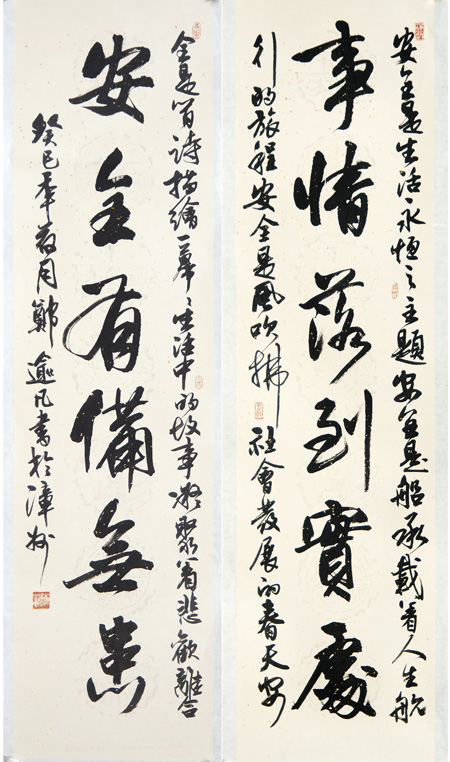 安全是生活永恒之主題安全是船承載着人生航
事情落到實處
行的旅程安全是風吹拂社會發展的春天安
全是首詩描繪一幕々生活中的故事凝聚着悲歡離合
安全有備無患
癸巳年荷月鄭逾凡書於漳州